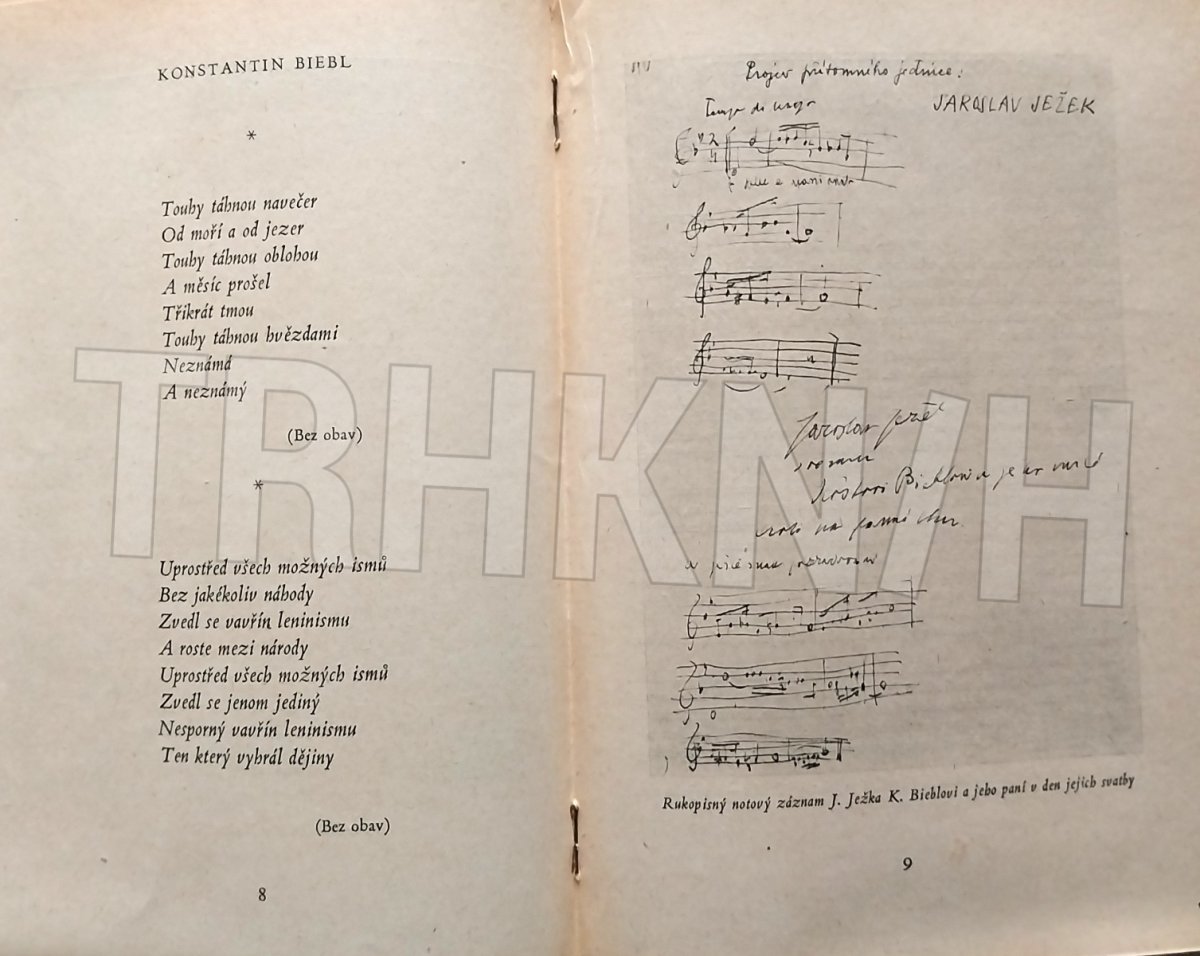 KONSTANTIN BIEBL
*
Touhy táhnou navečer
Od moří a od jezer
Touhy táhnou oblohou
A měsíc prošel
Třikrát tmou
Touhy táhnou hvězdami
Neznámá
A neznámý
(Bez obav)
*
Uprostřed všech možných ismů
Bez jakékoliv náhody
Zvedl se vavřín leninismu
A roste mezi národy
Uprostřed všech možných ismů
Zvedl se jenom jediný
Nesporný vavřín leninismu
Ten který vyhrál dějiny
(Bez obav)
8
Projev přítomného jedince:
JAROSLAV JEŽEK
Tempo di
Jaroslav Ježek
na
Rukopisný notový záznam J. Ježka K. Bieblovi a jeho paní v den jejich svatby
9
TRHKNIH